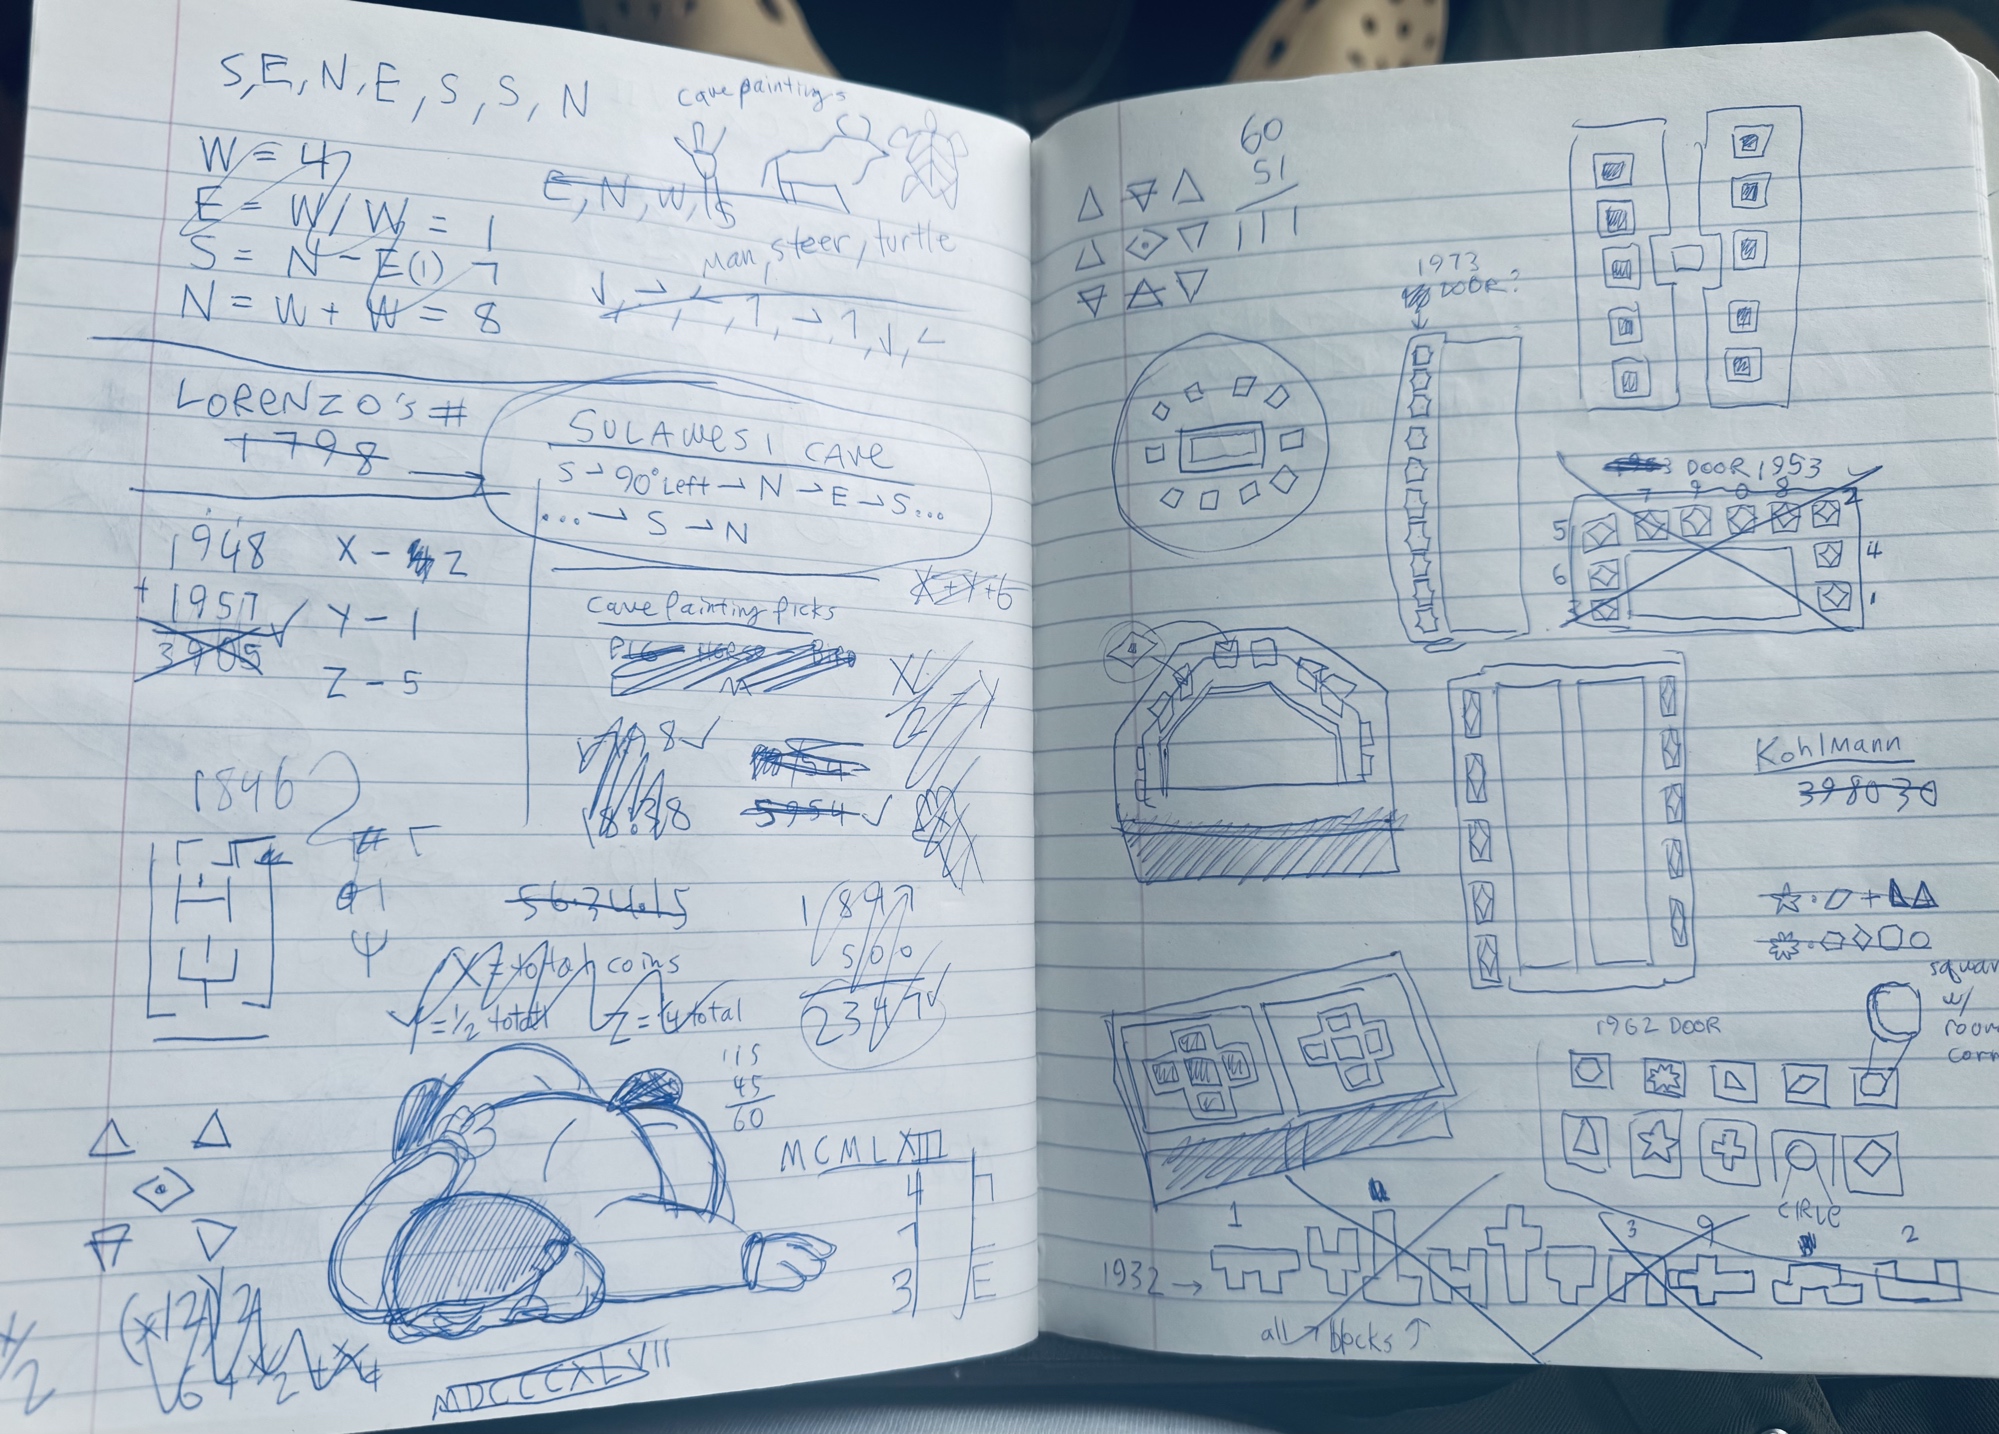 S,E,N,E,S,S,N
cave paintings
W = 4
E = W/W = 1
S = N - E(1) 7
N = W + W = 8
E, N, W, S
Man, steer, turtle
LORENZO's #
1798
SULAWESI CAVE
S → 90° Left → N → E → S...
... → S → N
1948
+ 1957
3905
X - 2
Y - 1
Z - 5
Cave Painting Picks
PIG HORSE BIRD
X+Y+6
5954
1846
56.34.15
X = total coins
Y = 1/2 total
Z = 1/4 total
1897
500
2347
115
45
60
MCMLXIII
4
7
3
E
MDCCCXLVII
60
51
111
1973
DOOR?
DOOR 1953
5 7 9 0 8 2
6 4
3 1
Kohlmann
398030
square
w/
round
corn
1962 DOOR
CIRLE
1 3 9 2
1932 →
all blocks ↑